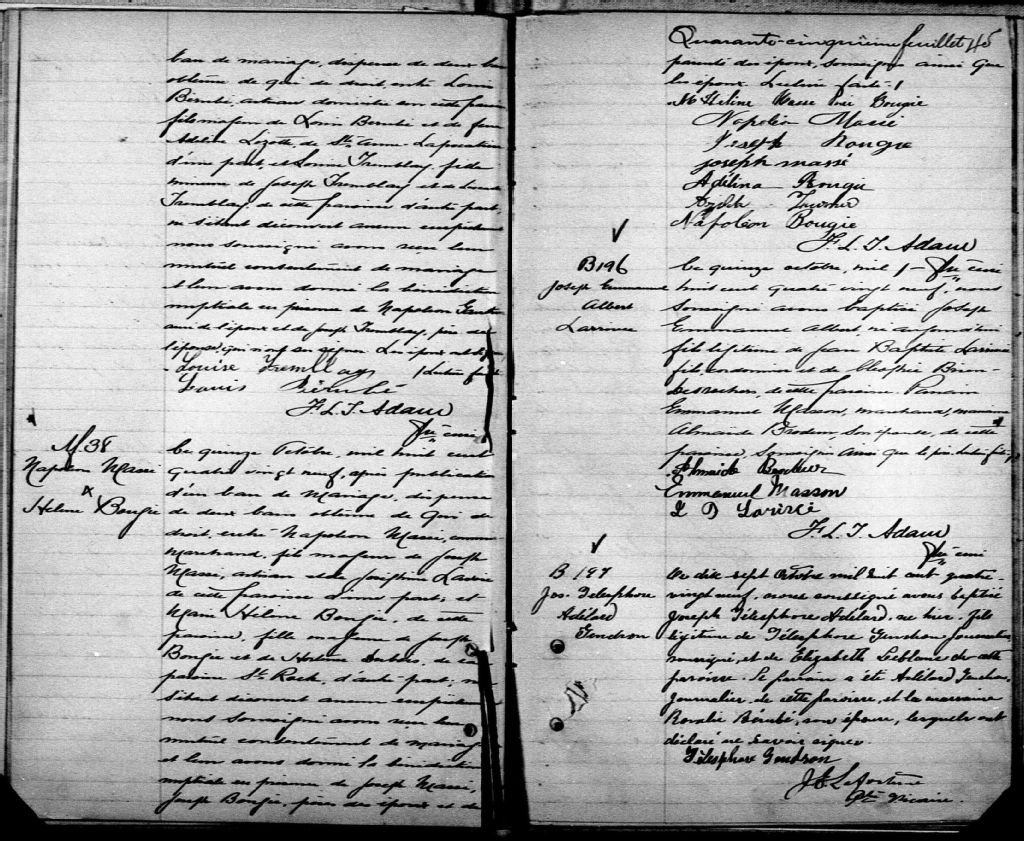 ban de mariage, dispense de deux bans
obtenue de qui de droit, entre Louis
Bérubé, artisan domicilié en cette paroisse
fils majeur de Louis Bérubé et de feue
Adeline Lizotte, de Ste Anne Lapocatière
d'une part, et Louise Tremblay, fille
mineure de Joseph Tremblay et de
Tremblay, de cette paroisse d'autre part,
ne s'étant découvert aucun empêchement
nous soussigné avons reçu leur
mutuel consentement de mariage
et leur avons donné la bénédiction
nuptiale en présence de Napoléon
ami de l'époux et de Joseph Tremblay, père de
l'épouse, qui n'ont su signer. Les époux ont signé
Louise Tremblay / Lecture faite
Louis Bérubé
F. L. T. Adam
Ptre curé
M. 38
Napoléon Massé
&
Hélène Bougie
Le quinze Octobre, mil huit cent
quatre vingt neuf, après publication
d'un ban de mariage, dispense
de deux bans obtenue de qui de
droit, entre Napoléon Massé, commis
marchand, fils majeur de Joseph
Massé, artisan et de Joséphine Lavoie
de cette paroisse d'une part; et
Marie Hélène Bougie, de cette
paroisse, fille majeure de Joseph
Bougie et de Hélène Dubois, de la
paroisse St. Roch, d'autre part; ne
s'étant découvert aucun empêchement
nous soussigné avons reçu leur
mutuel consentement de mariage
et leur avons donné la bénédiction
nuptiale en présence de Joseph Massé,
Joseph Bougie, pères des époux et de
Quarante-cinquième feuillet 45
parenté des époux, soussignés ainsi que
les époux. Lecture faite. /
M Héline Masse née Bougie
Napoléon Massé
Joseph Bougie
joseph massé
Adélina Bougie
Napoléon Bougie
F. L. T. Adam
Ptre curé
B 196
Joseph Emmanuel
Albert
Larivée
Le quinze octobre, mil /
huit cent quatre vingt neuf, nous
soussigné avons baptisé Joseph
Emmanuel Albert, né aujourd'hui
fils légitime de Jean Baptiste Larivée
fils cordonnier et de Brien-
Desrochers, de cette paroisse. Parrain
Emmanuel Masson, marchand, marraine
Almaïde Brodeur, son épouse, de cette
paroisse, soussignés ainsi que le père. Lecture faite
Almaide Brodeur
Emmanuel Masson
Larivée
F. L. T. Adam
Ptre curé
B 197
Jos. Télesphore
Adélard
Gendron
Le dix-sept octobre mil huit cent quatre-
vingt neuf, nous soussigné avons baptisé
Joseph Télesphore Adélard, né hier, fils
légitime de Télesphore Gendron journalier
soussigné, et de Elizabeth Leblanc de cette
paroisse. Le parrain a été Adélard Gendron
journalier, de cette paroisse, et la marraine
Rosalie Bérubé, son épouse, lesquels ont
déclaré ne savoir signer.
Télesphore Gendron
J E Laforture
Ptre vicaire.